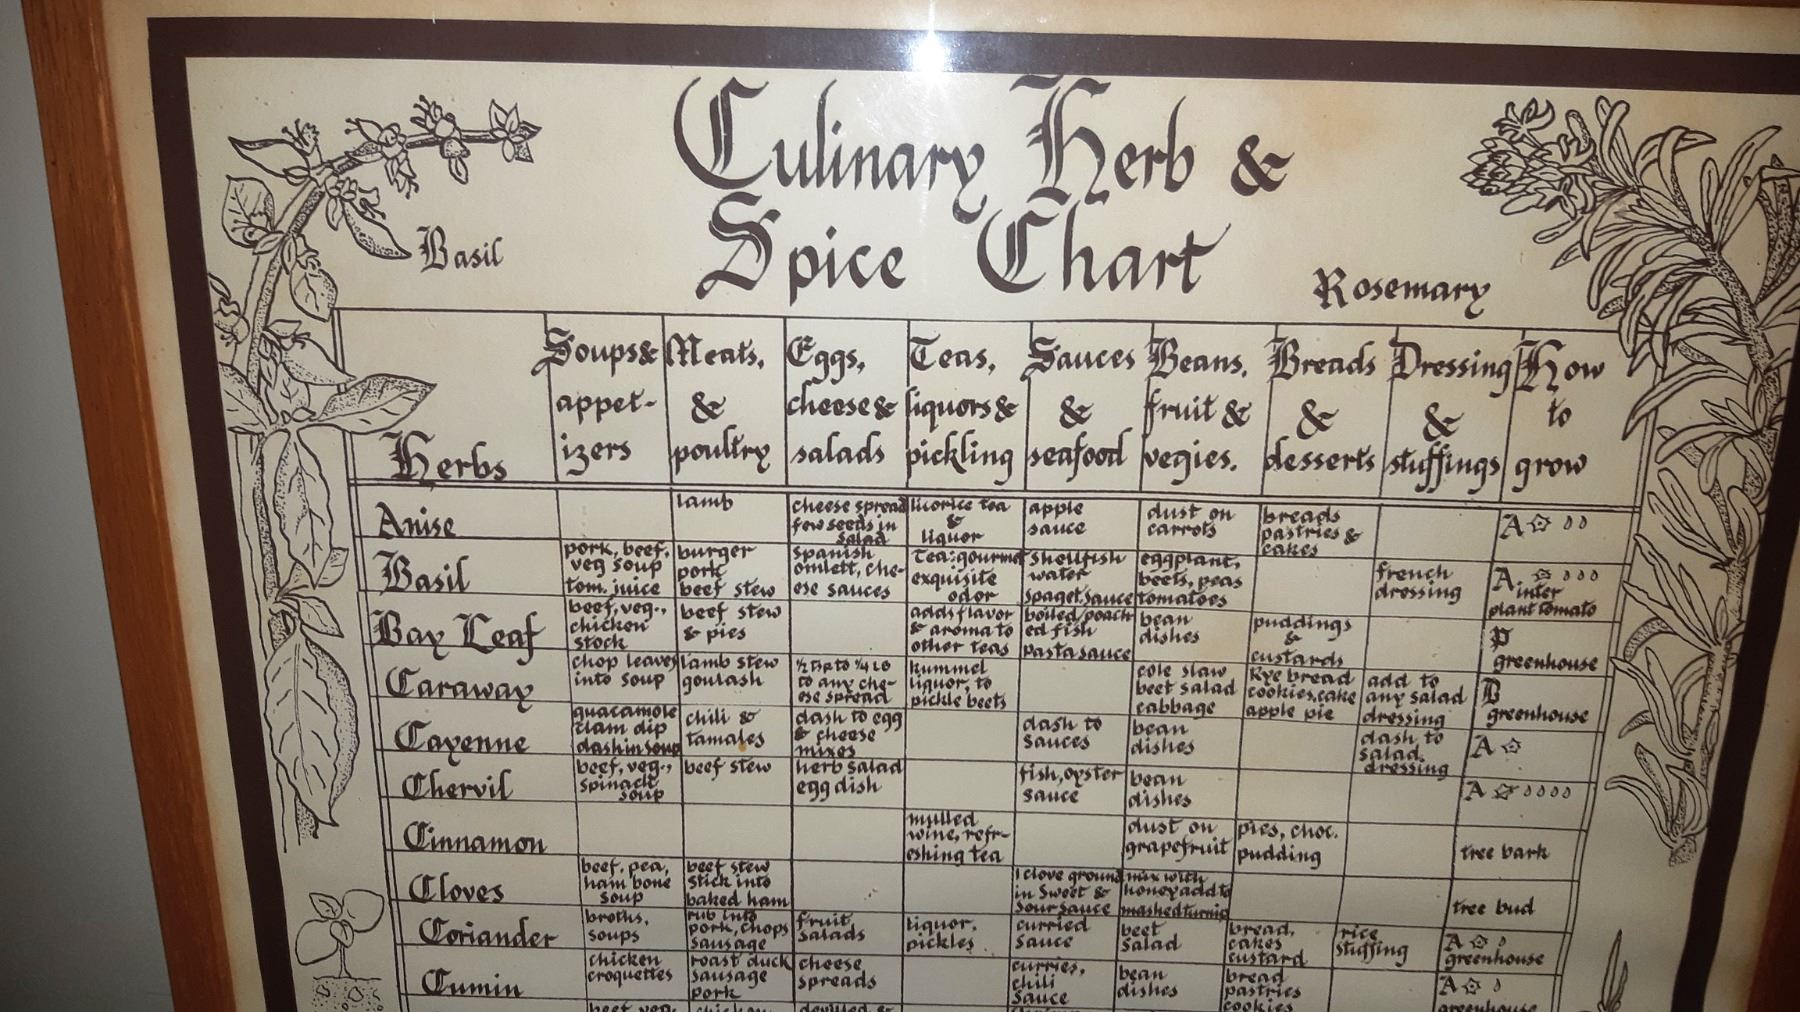 Culinary Herb &
Spice Chart
Basil
Rosemary
Herbs
Soups &
appet-
izers
Meats,
&
poultry
Eggs,
cheese &
salads
Teas,
liquors &
pickling
Sauces
&
seafood
Beans,
fruit &
vegies.
Breads
&
desserts
Dressing
&
stuffings
How
to
grow
Anise
lamb
cheese spread
few seeds in
salad
licorice tea
&
liquor
apple
sauce
dust on
carrots
breads
pastries &
cakes
A
Basil
pork, beef,
veg soup
tom. juice
burger
pork
beef stew
Spanish
omlett, che-
ese sauces
Tea: gourmet
exquisite
odor
Shellfish
water
spaget. sauce
eggplant,
beets, peas
tomatoes
french
dressing
A
inter
plant tomato
Bay Leaf
beef, veg.,
chicken
stock
beef stew
& pies
adds flavor
& aroma to
other teas
boiled/poach
ed fish
pasta sauce
bean
dishes
puddings
&
custards
P
greenhouse
Caraway
chop leaves
into soup
lamb stew
goulash
to any che-
ese spread
kummel
liquor, to
pickle beets
cole slaw
beet salad
cabbage
Rye bread
cookies, cake
apple pie
add to
any salad
dressing
B
greenhouse
Cayenne
guacamole
clam dip
dash in soup
chili &
tamales
dash to egg
& cheese
mixes
dash to
sauces
bean
dishes
dash to
salad
dressing
A
Chervil
beef, veg.,
spinach
soup
beef stew
herb salad
egg dish
fish, oyster
sauce
bean
dishes
A
Cinnamon
mulled
wine, refr-
eshing tea
dust on
grapefruit
pies, choc.
pudding
tree bark
Cloves
beef, pea,
ham bone
soup
beef stew
stick into
baked ham
1 clove ground
in Sweet &
Sour Sauce
mix with
honey add to
mashed turnip
tree bud
Coriander
broths,
soups
rub into
pork, chops
sausage
fruit
salads
liquor,
pickles
curried
sauce
beet
salad
bread,
cakes
custard
rice
stuffing
A
greenhouse
Cumin
chicken
croquettes
roast duck
sausage
pork
cheese
spreads
curries,
chili
sauce
bean
dishes
bread
pastries
cookies
A
greenhouse
beef, veg.
chicken
deviled &